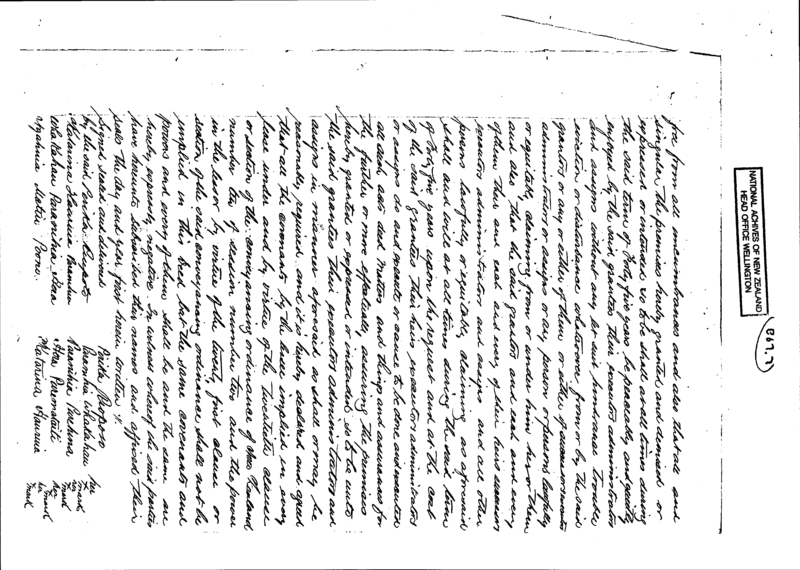 free from all incumbrances and also that all and
singular the premises hereby granted and demised or
expressed or intended so to be shall at all times during
the said term of Forty five years be peaceably and quietly
enjoyed by the said grantees their executors administrators
and assigns without any let suit hindrance trouble
eviction or disturbance whatsoever from or by the said
grantors or any or either of them or
administrators or assigns or any person or persons lawfully
or equitably claiming from or under him her or them
and also that the said grantors and each and every
of them their and each and every of their heirs
executors administrators and assigns and all other
persons lawfully or equitably claiming as aforesaid
shall and will at all times during the said term
of Forty five years upon the request and at the cost
of the said grantees their heirs executors administrators
or assigns do and execute or cause to be done and executed
all such acts deeds matters and things and assurances for
the further or more effectually assuring the premises
hereby granted or expressed or intended so to be unto
the said grantees their executors administrators and
assigns in manner aforesaid as shall or may be
reasonably required and it is hereby declared and agreed
that all the covenants by the lessee implied in every
lease under and by virtue of the twentieth clause
or section of the conveyancing ordinance of New Zealand
number ten of session number two and the power
in the lessor by virtue of the twenty first clause or
section of the said conveyancing ordinance shall not be
implied in this lease but the same covenants and
powers and every of them shall be and the same are
hereby expressly negatived In witness whereof the said parties
have hereunto subscribed their names and affixed their
seals the day and year first herein written
Signed sealed and delivered
by the said
her
mark
NATIONAL ACHIVES OF NEW ZEALAND
HEAD OFFICE WELLINGTON